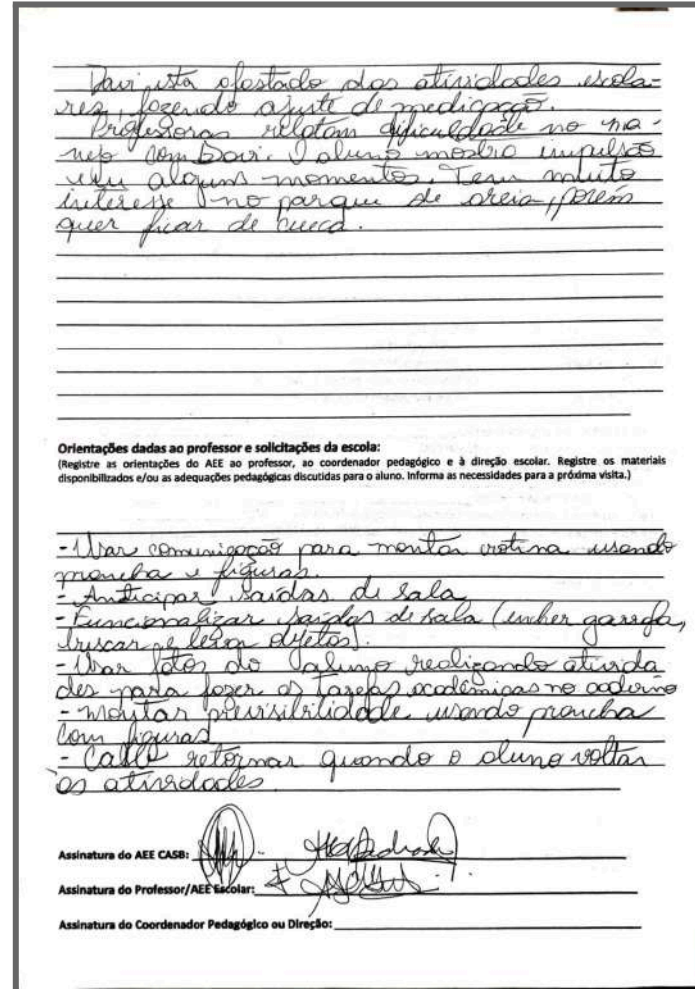 Davi esta afastado das atividades escola=
res, fazendo ajuste de medicação.
Professoras relatam dificuldade no ma-
nejo com Davi. O aluno mostra impulsão
em alguns momentos. Tem muito
interesse no parque de areia, porém
quer ficar de cueca.
Orientações dadas ao professor e solicitações da escola:
(Registre as orientações do AEE ao professor, ao coordenador pedagógico e à direção escolar. Registre os materiais
disponibilizados e/ou as adequações pedagógicas discutidas para o aluno. Informa as necessidades para a próxima visita.)
- Usar comunicação para montar rotina usando
prancha e figuras.
- Anticipar saídas de sala
- Funcionalizar saídas de sala (encher garrafa,
buscar e levar objetos).
- Usar fotos do aluno realizando ativida
des para fazer as tarefas acadêmicas no caderno
- Montar previsibilidade usando prancha
com figuras
- retornar quando o aluno voltar
as atividades.
Assinatura do AEE CASB:
Assinatura do Professor/AEE Escolar:
Assinatura do Coordenador Pedagógico ou Direção: